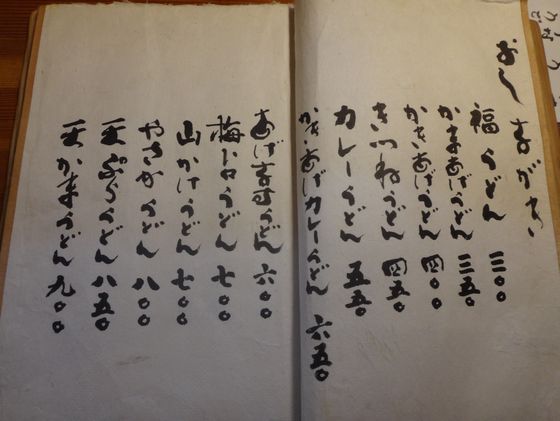 おしながき
福うどん 三〇〇
かまあげうどん 三五〇
かきあげうどん 四〇〇
きつねうどん 四五〇
カレーうどん 五五〇
かきあげカレーうどん 六五〇
あげなすうどん 六〇〇
うどん 七〇〇
山かけうどん 七〇〇
うどん 八〇〇
天ぷらうどん 八五〇
天かまうどん 九〇〇